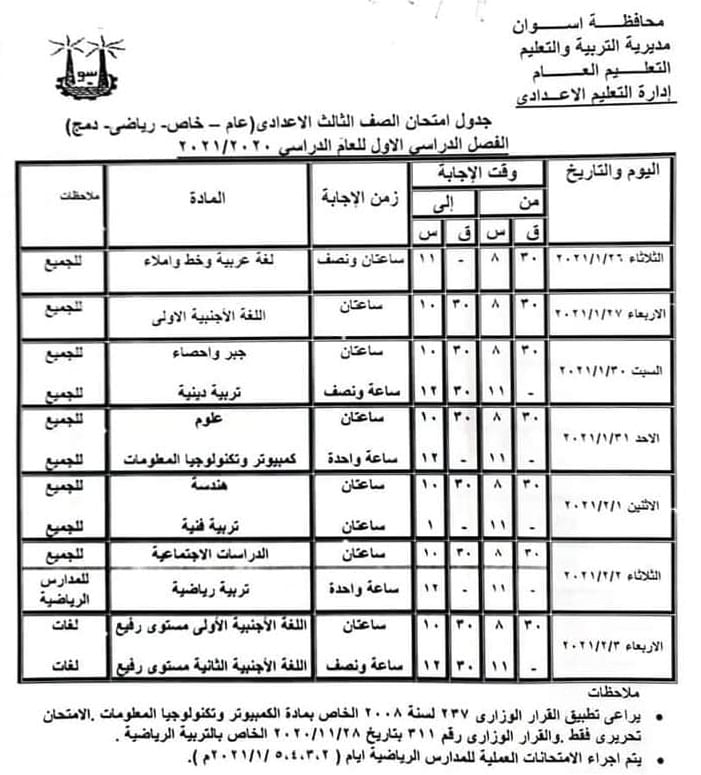 محافظة اسوان
مديرية التربية والتعليم
التعليم العام
إدارة التعليم الاعدادى
جدول امتحان الصف الثالث الاعدادى(عام – خاص- رياضى- دمج)
الفصل الدراسي الاول للعام الدراسي ٢٠٢١/٢٠٢٠
اليوم والتاريخ وقت الإجابة زمن الإجابة المادة ملاحظات
من إلى
ق س ق س
الثلاثاء ٢٠٢١/١/٢٦ ٣٠ ٨ - ١١ ساعتان ونصف لغة عربية وخط واملاء للجميع
الاربعاء ٢٠٢١/١/٢٧ ٣٠ ٨ ٣٠ ١٠ ساعتان اللغة الأجنبية الاولى للجميع
السبت ٢٠٢١/١/٣٠ ٣٠ ٨ ٣٠ ١٠ ساعتان جبر واحصاء للجميع
- ١١ ٣٠ ١٢ ساعة ونصف تربية دينية للجميع
الاحد ٢٠٢١/١/٣١ ٣٠ ٨ ٣٠ ١٠ ساعتان علوم للجميع
- ١١ - ١٢ ساعة واحدة كمبيوتر وتكنولوجيا المعلومات للجميع
الاثنين ٢٠٢١/٢/١ ٣٠ ٨ ٣٠ ١٠ ساعتان هندسة للجميع
- ١١ - ١ ساعتان تربية فنية للجميع
الثلاثاء ٢٠٢١/٢/٢ ٣٠ ٨ ٣٠ ١٠ ساعتان الدراسات الاجتماعية للجميع
- ١١ - ١٢ ساعة واحدة تربية رياضية للمدارس الرياضية
الاربعاء ٢٠٢١/٢/٣ ٣٠ ٨ ٣٠ ١٠ ساعتان اللغة الأجنبية الأولى مستوى رفيع لغات
- ١١ ٣٠ ١٢ ساعة ونصف اللغة الأجنبية الثانية مستوى رفيع لغات
ملاحظات
• يراعى تطبيق القرار الوزارى ٢٣٧ لسنة ٢٠٠٨ الخاص بمادة الكمبيوتر وتكنولوجيا المعلومات .الامتحان
تحريرى فقط .والقرار الوزارى رقم ٣١١ بتاريخ ٢٠٢٠/١١/٢٨ الخاص بالتربية الرياضية .
• يتم اجراء الامتحانات العملية للمدارس الرياضية ايام ( ٥،٤،٣،٢ /٢٠٢١/١م ).